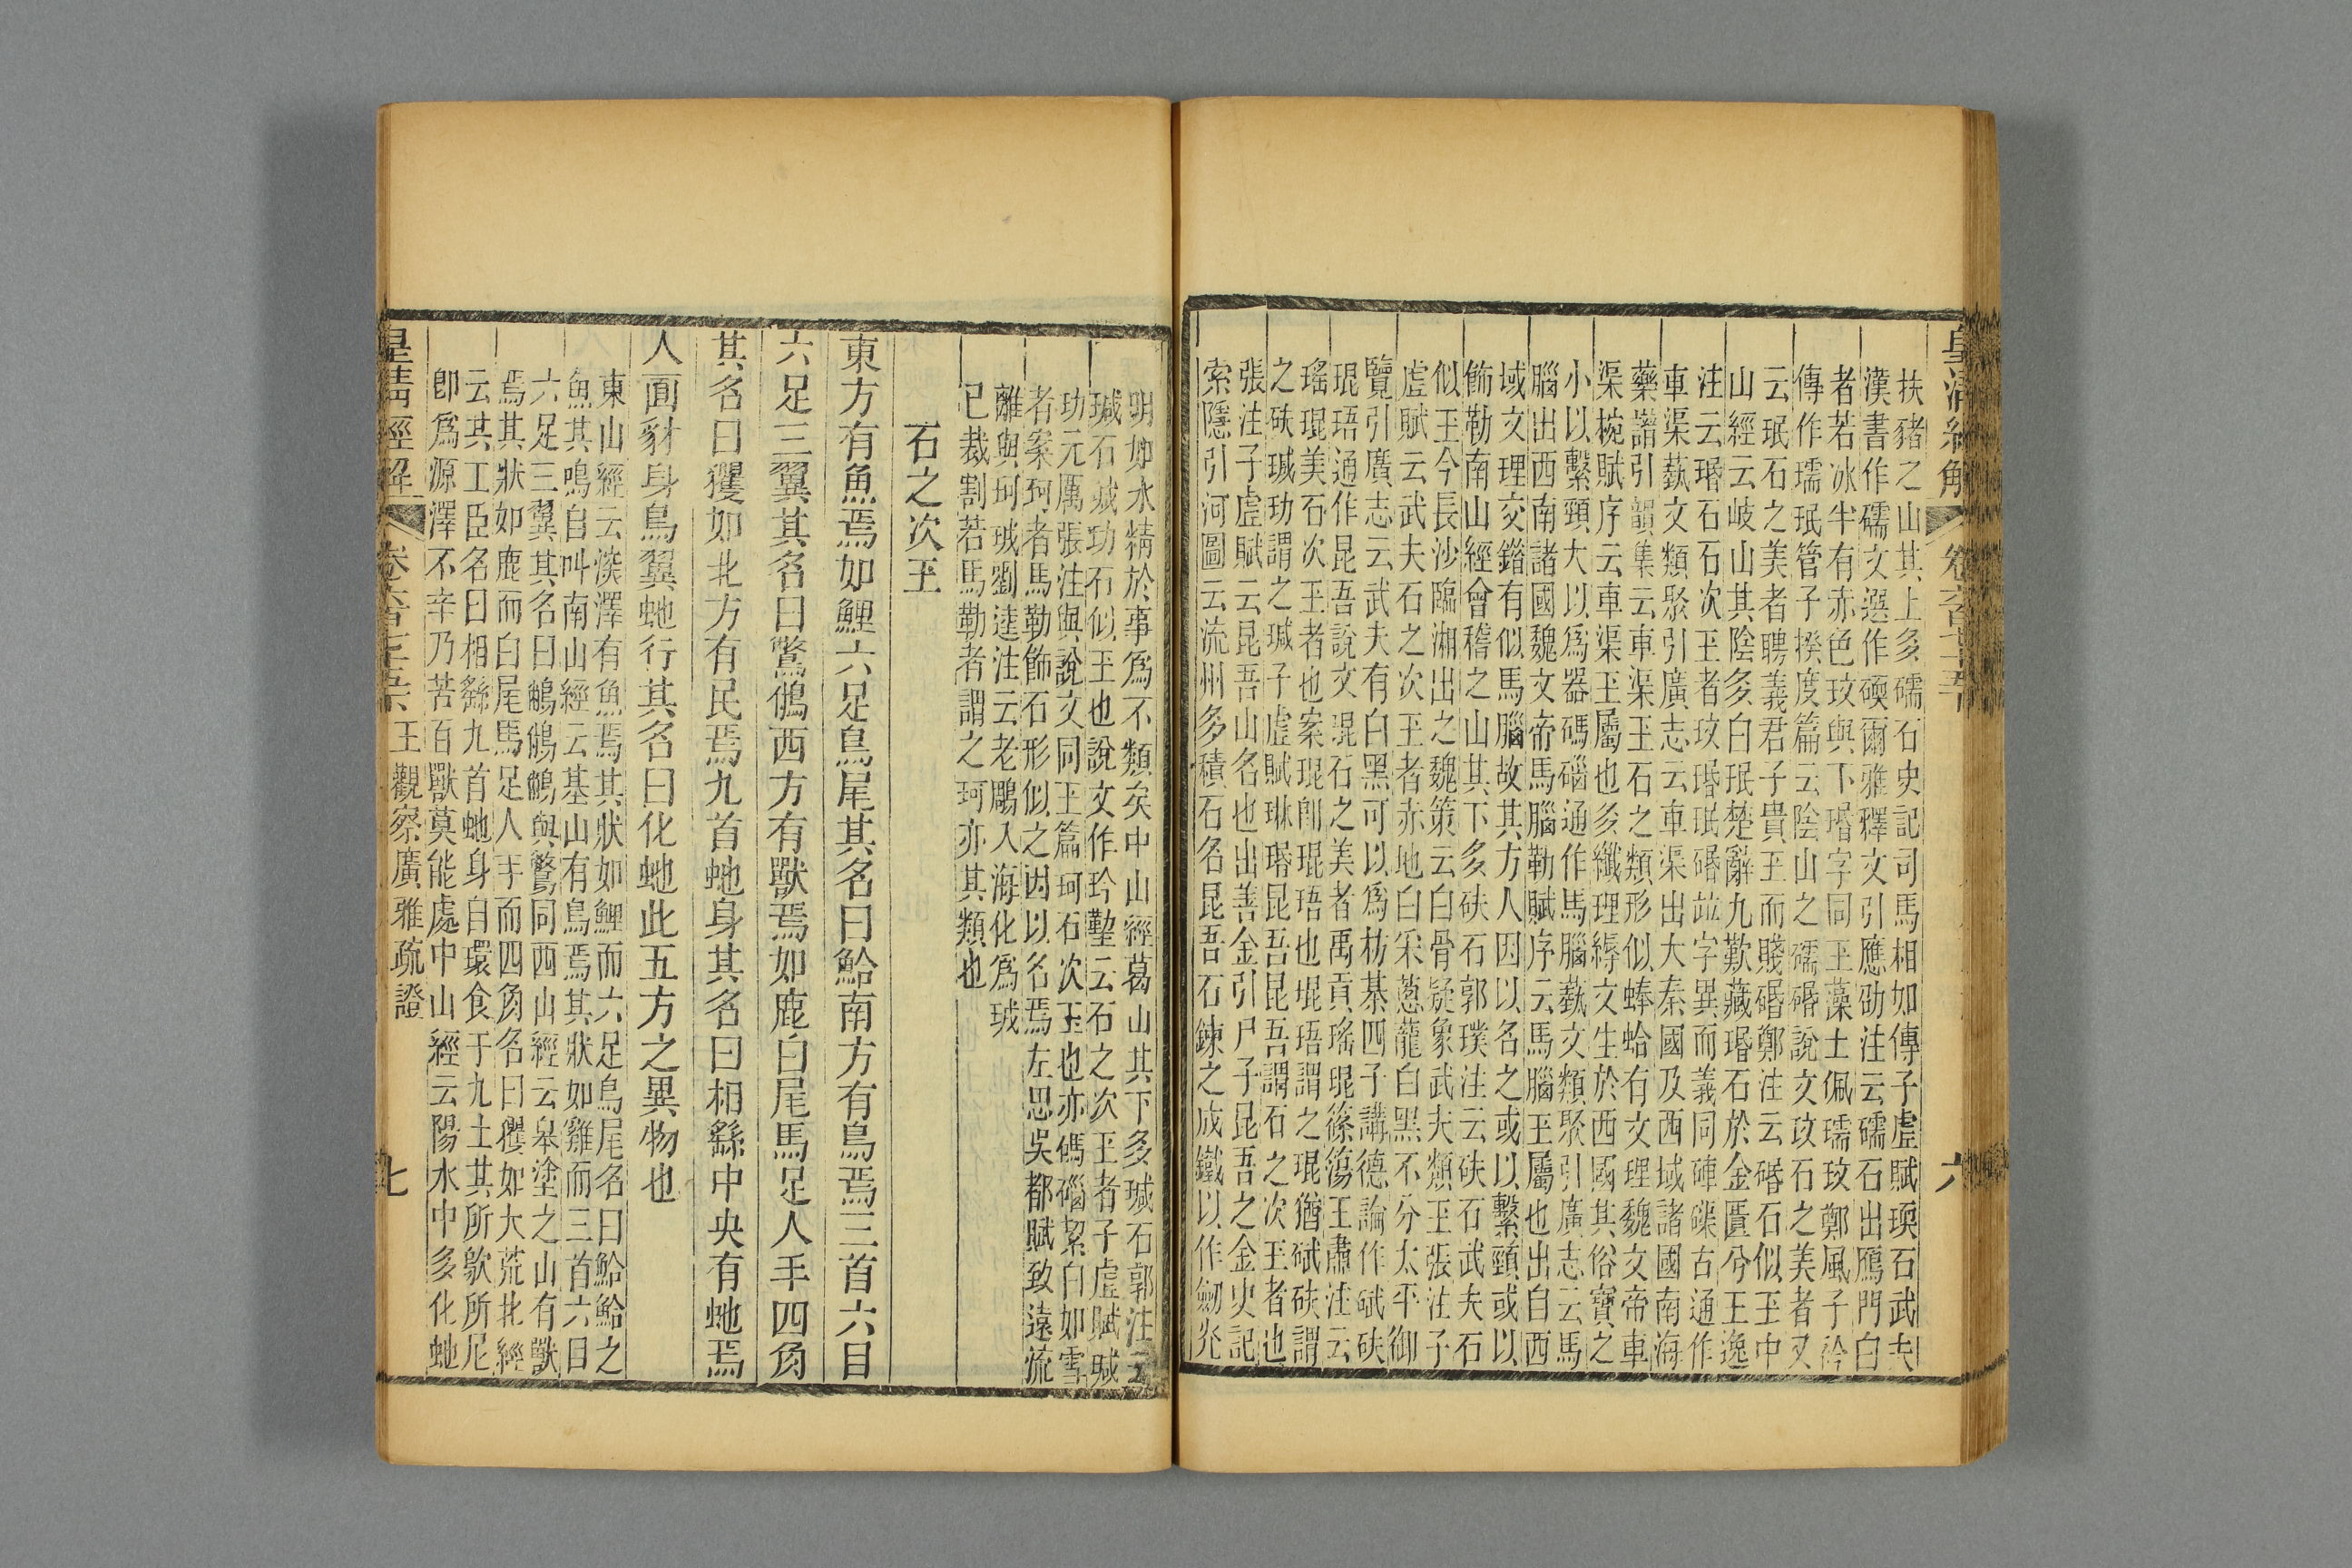 皇清經解
六
扶豬之山其上多礝石史記司馬相如傳子虛賦瑌石武夫
漢書作礝文選作碝爾雅釋文引應劭注云礝石出鴈門白
者若冰半有赤色玟與下瑉字同玉藻士佩瓀玟鄭風子衿
傳作瓀珉管子揆度篇云陰山之礝碈說文玟石之美者又
云珉石之美者聘義君子貴玉而賤碈鄭注云碈石似玉中
山經云岐山其陰多白珉楚辭九歎藏瑉石於金匱兮王逸
注云瑉石石次玉者玟瑉珉碈竝字異而義同硨磲古通作
車渠藝文類聚引廣志云車渠出大秦國及西域諸國南海
藥譜引韻集云車渠玉石之類形似蜯蛤有文理魏文帝車
渠椀賦序云車渠玉屬也多纖理縟文生於西國其俗寶之
小以繫頸大以爲器碼碯通作馬腦藝文類聚引廣志云馬
腦出西南諸國魏文帝馬腦勒賦序云馬腦玉屬也出自西
域文理交錯有似馬腦故其方人因以名之或以繫頸或以
飾勒南山經會稽之山其下多砆石郭璞注云砆石武夫石
似玉今長沙臨湘出之魏策云白骨疑象武夫類玉張注子
虛賦云武夫石之次玉者赤地白采蔥蘢白黑不分太平御
覽引廣志云武夫有白黑可以爲枋棊四子講德論作碔砆
琨珸通作昆吾說文琨石之美者禹貢瑤琨篠簜王肅注云
瑤琨美石次玉者也案琨卽琨珸也琨珸謂之琨猶碔砆謂
之砆瑊玏謂之瑊子虛賦琳瑉昆吾昆吾謂石之次玉者也
張注子虛賦云昆吾山名也出善金引尸子昆吾之金史記
索隱引河圖云流州多積石名昆吾石鍊之成鐵以作劒光
明如水精於事爲不類矣中山經葛山其下多瑊石郭注云
瑊石瑊玏石似玉也說文作玪塾云石之次玉者子虛賦瑊
玏元厲張注與說文同玉篇珂石次玉也亦碼碯絜白如雪
者案珂者馬勒飾石形似之因以名焉左思吳都賦致遠流
離與珂珬劉逵注云老鵰入海化爲珬
已裁割若馬勒者謂之珂亦其類也
石之次玉
東方有魚焉如鯉六足鳥尾其名曰鮯南方有鳥焉三首六目
六足三翼其名曰鷩鵂西方有獸焉如鹿白尾馬足人手四角
其名曰玃如北方有民焉九首虵身其名曰相繇中央有虵焉
人面豺身鳥翼虵行其名曰化虵此五方之異物也
東山經云深澤有魚焉其狀如鯉而六足鳥尾名曰鮯鮯之
魚其鳴自叫南山經云基山有鳥焉其狀如雞而三首六目
六足三翼其名曰鵂鵂與鷩同西山經云皋塗之山有獸
焉其狀如鹿而白尾馬足人手而四角名曰玃如大荒北經
云其工臣名曰相繇九首虵身自環食于九土其所歍所尼
卽爲源澤不辛乃苦百獸莫能處中山經云陽水中多化虵
皇清經解
王觀察廣雅疏證
七